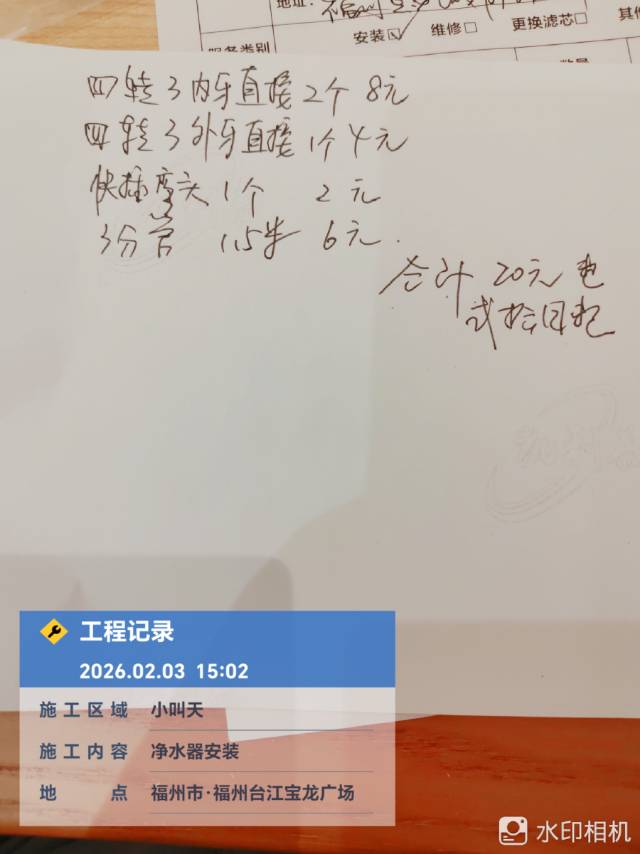 地址:
安装☑ 维修□ 更换滤芯□ 其
服务类别
数量
四转3内牙直接2个 8元
四转3外牙直接1个 4元
快插弯头1个 2元
3分管 1.5米 6元.
合计 20元
工程记录
2026.02.03 15:02
施工区域 小叫天
施工内容 净水器安装
地点 福州市·福州台江宝龙广场
水印相机